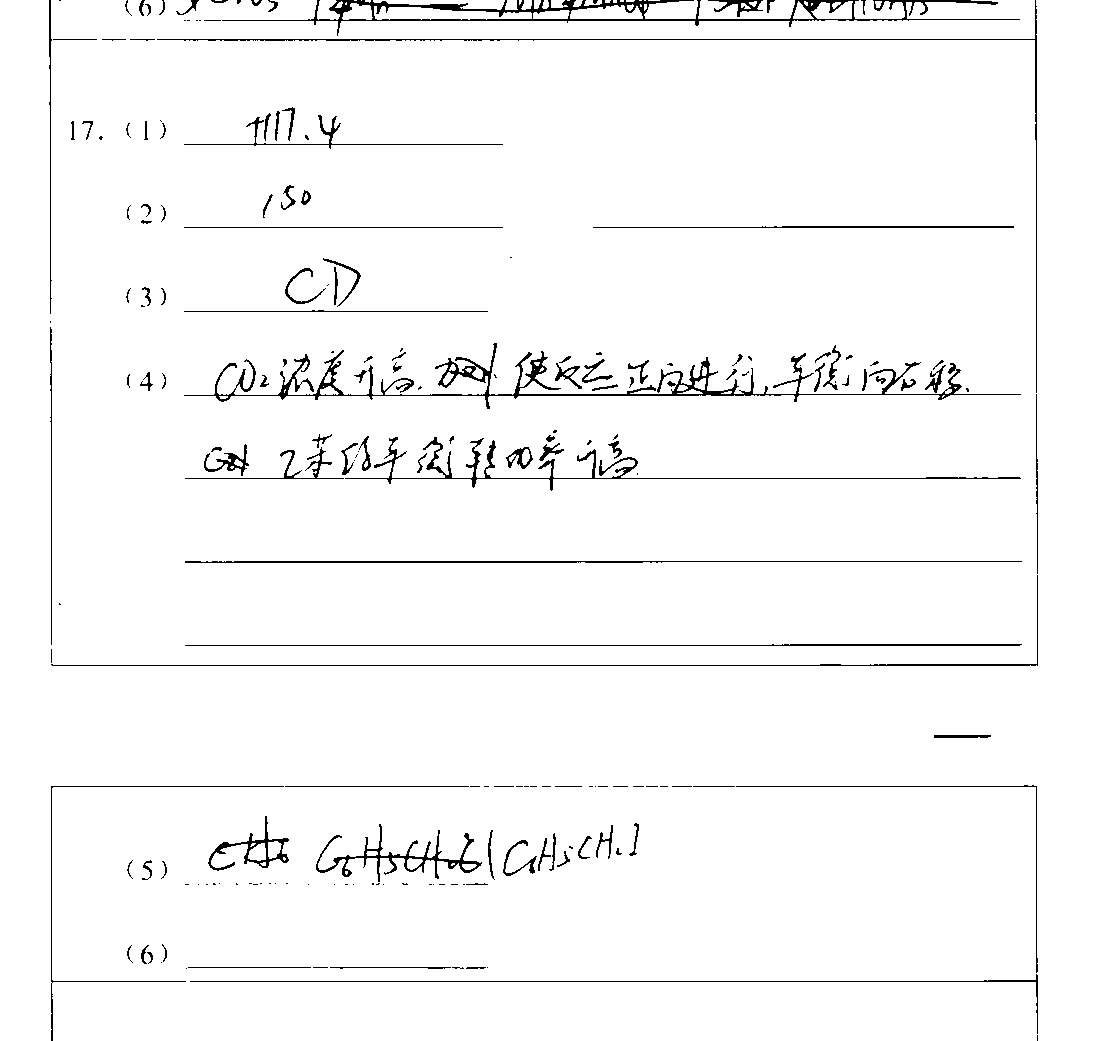 (6)
17. (1) +117.4
(2) 150
(3) CD
(4) CO₂浓度升高. 使反应正向进行, 平衡向右移.
乙苯的平衡转化率升高
(5) C₆H₅CH₂
(6)